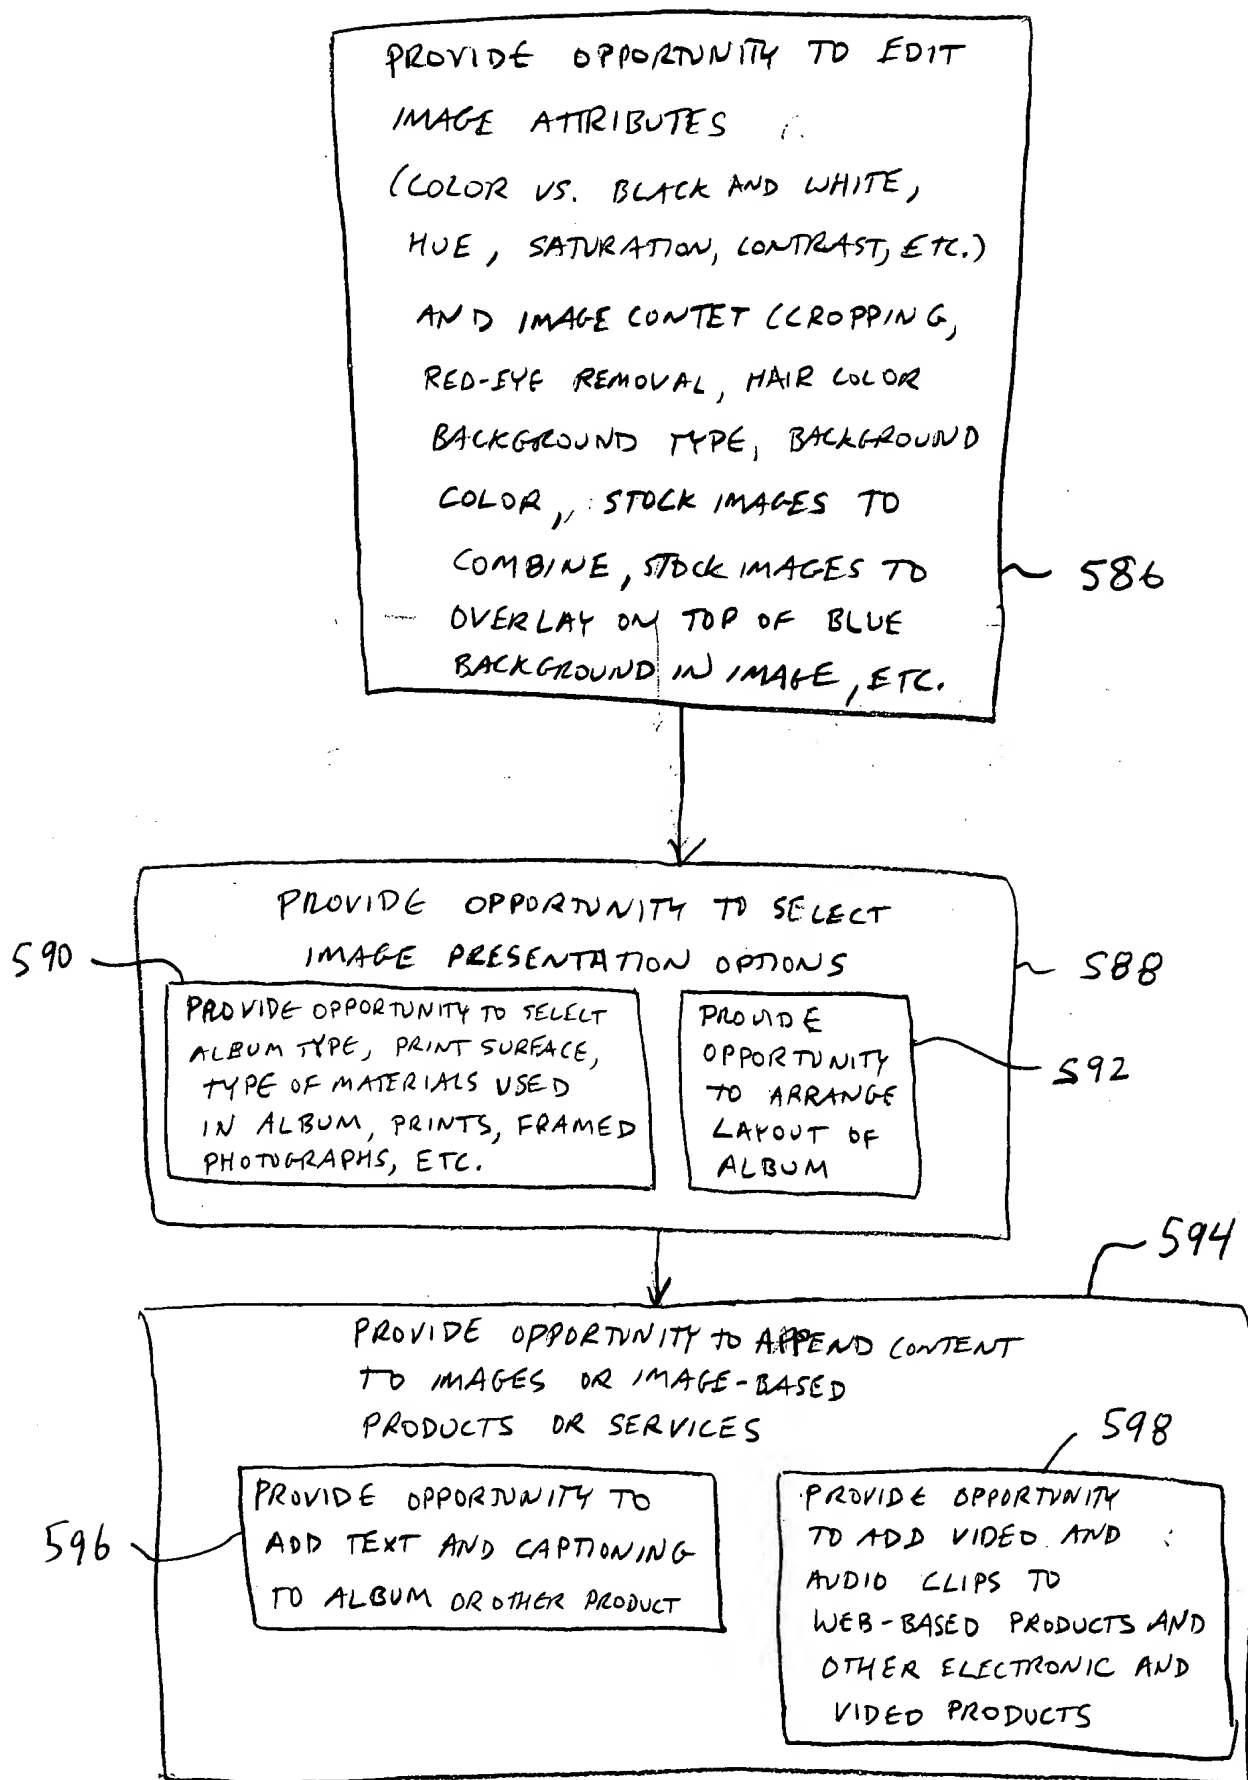 PROVIDE OPPORTUNITY TO EDIT
IMAGE ATTRIBUTES
(COLOR VS. BLACK AND WHITE,
HUE, SATURATION, CONTRAST, ETC.)
AND IMAGE CONTET (CROPPING,
RED-EYE REMOVAL, HAIR COLOR
BACKGROUND TYPE, BACKGROUND
COLOR, STOCK IMAGES TO
COMBINE, STOCK IMAGES TO
OVERLAY ON TOP OF BLUE
BACKGROUND IN IMAGE, ETC.
586
PROVIDE OPPORTUNITY TO SELECT
IMAGE PRESENTATION OPTIONS
588
590
PROVIDE OPPORTUNITY TO SELECT
ALBUM TYPE, PRINT SURFACE,
TYPE OF MATERIALS USED
IN ALBUM, PRINTS, FRAMED
PHOTOGRAPHS, ETC.
PROVIDE
OPPORTUNITY
TO ARRANGE
LAYOUT OF
ALBUM
592
594
PROVIDE OPPORTUNITY TO APPEND CONTENT
TO IMAGES OR IMAGE-BASED
PRODUCTS OR SERVICES
596
PROVIDE OPPORTUNITY TO
ADD TEXT AND CAPTIONING
TO ALBUM OR OTHER PRODUCT
598
PROVIDE OPPORTUNITY
TO ADD VIDEO AND
AUDIO CLIPS TO
WEB-BASED PRODUCTS AND
OTHER ELECTRONIC AND
VIDEO PRODUCTS